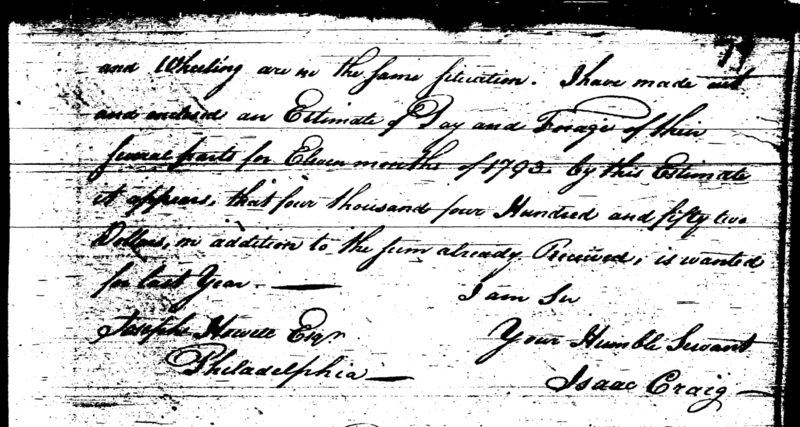 79
and Wheeling are in the same situation. I have made out
and enclosed an Estimate of Pay and Forage of their
several parts for Eleven months of 1793. by this Estimate
it appears, that four thousand four Hundred and fifty two
Dollars, in addition to the sum already Received, is wanted
for last Year. —
I am Sir
Joseph Howell Esqr
Your Humble Servant
Philadelphia —
Isaac Craig —